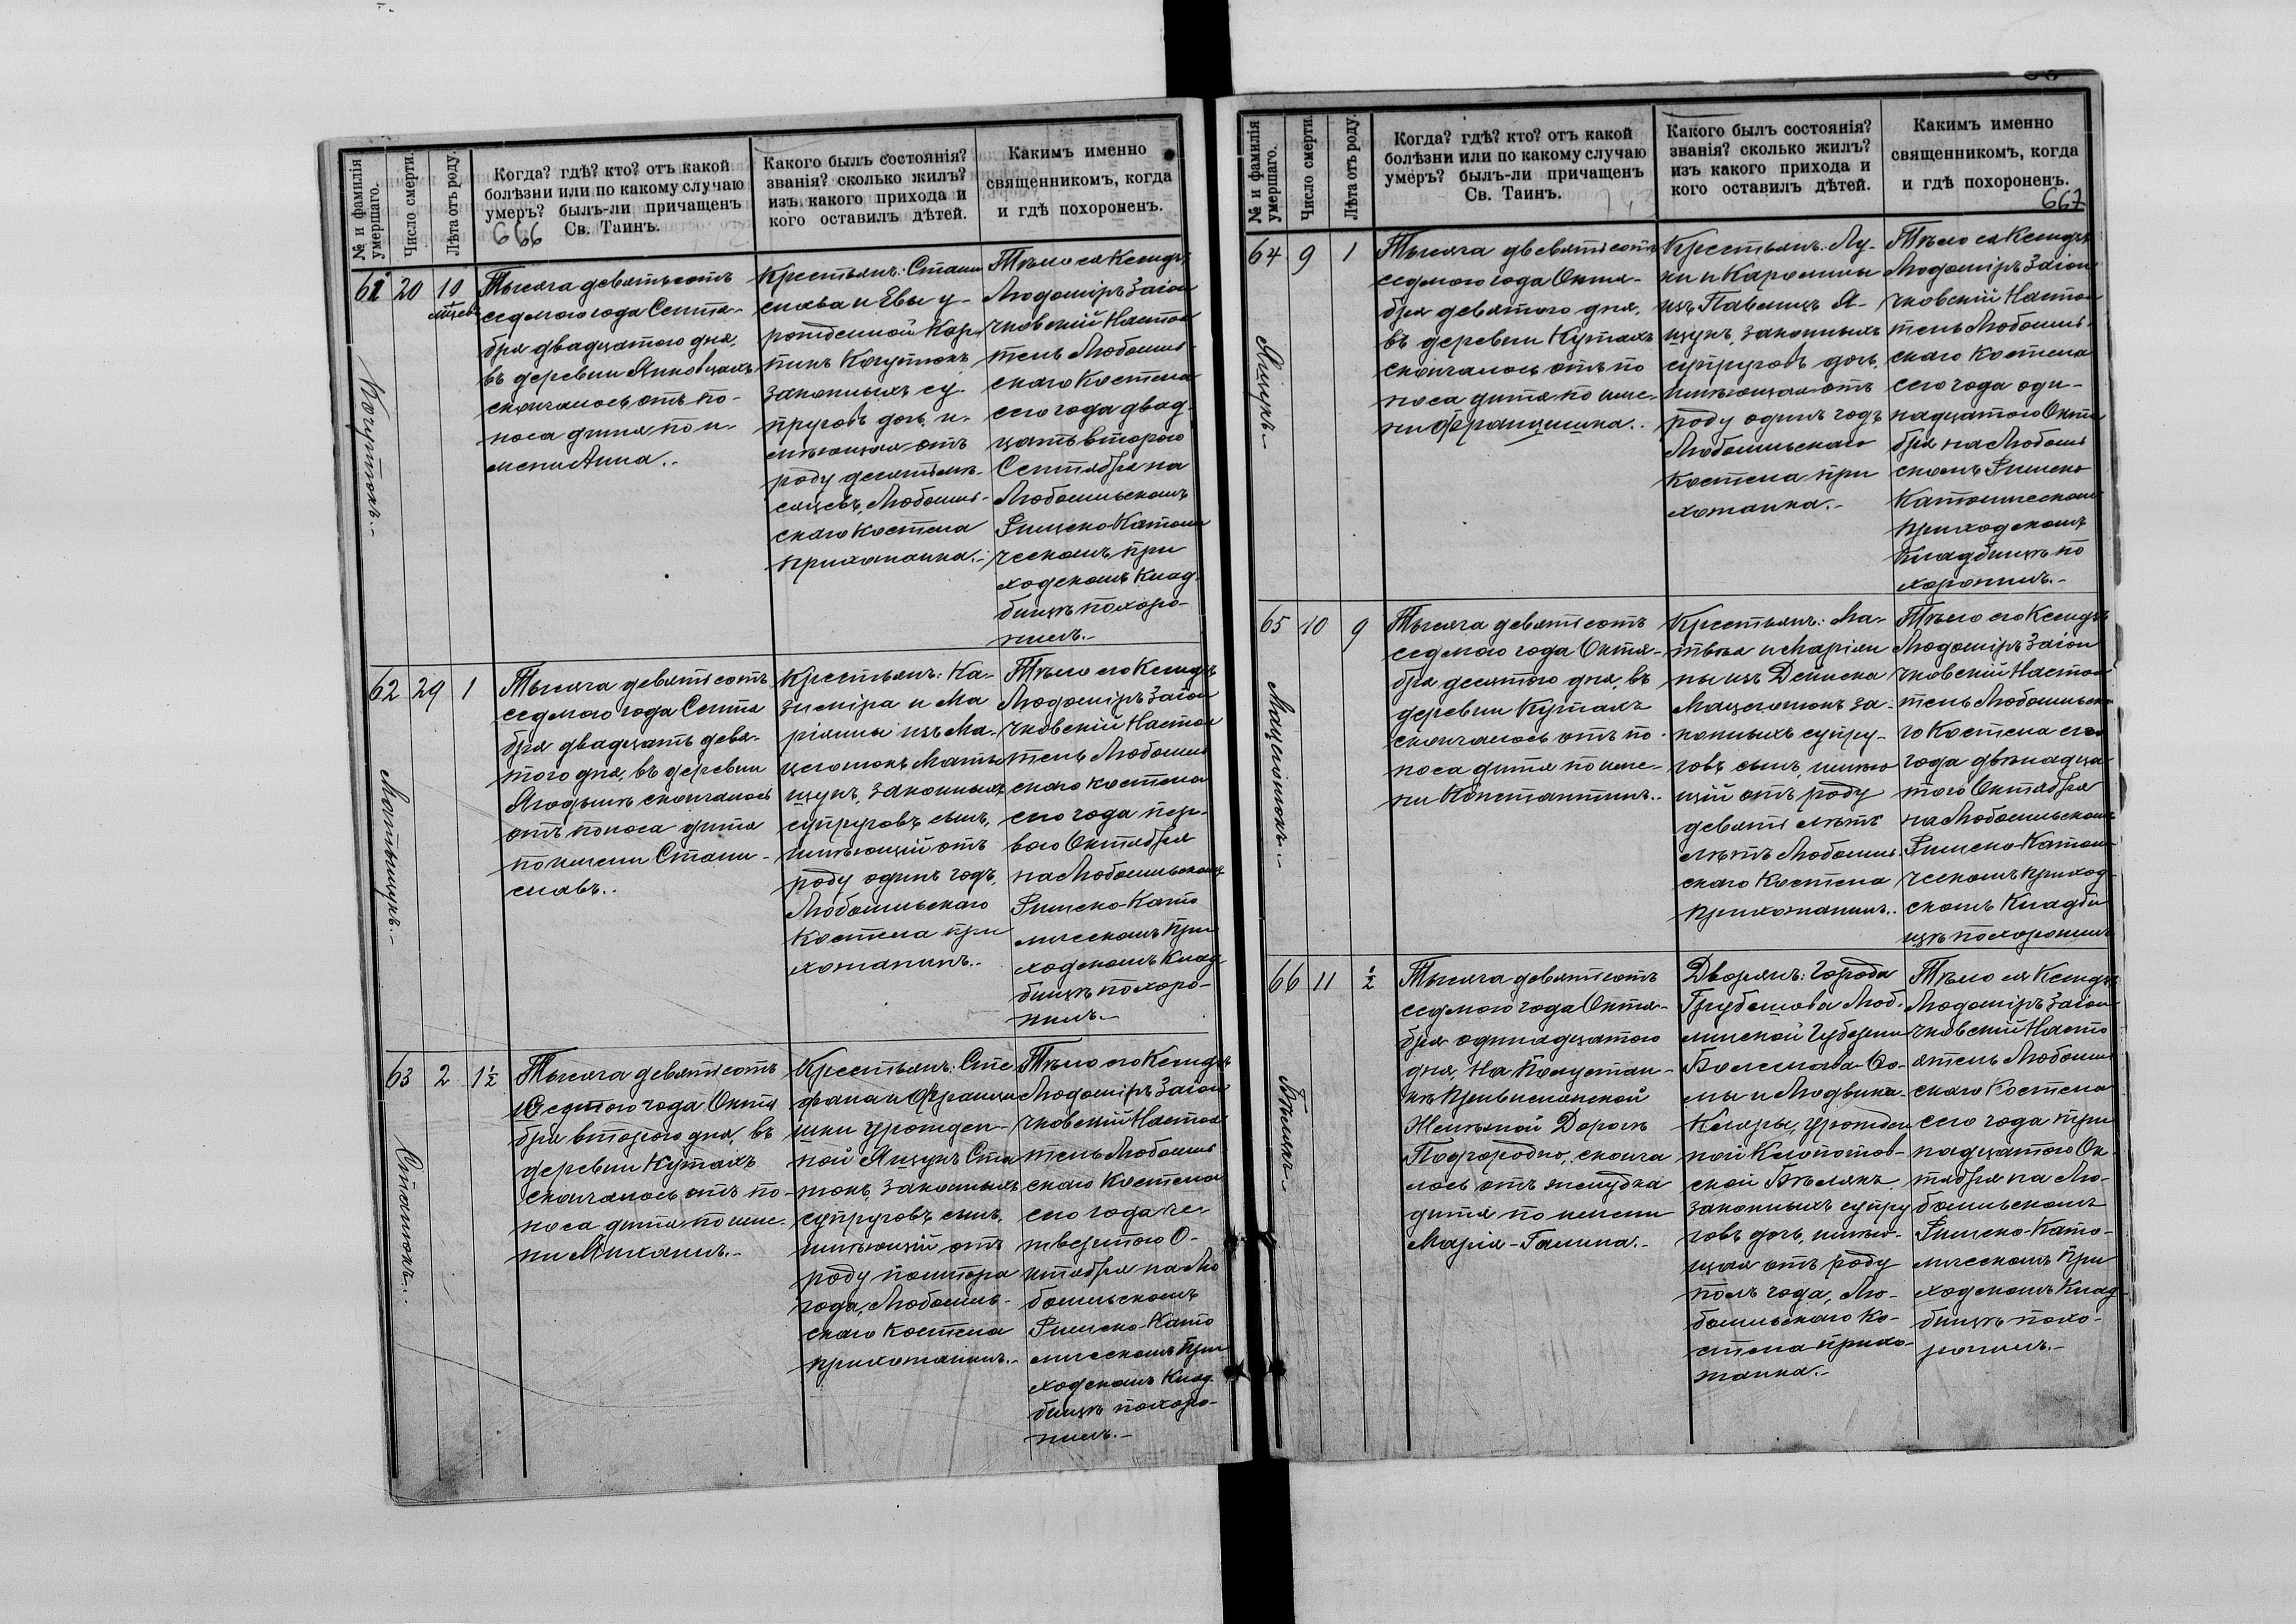 № и фамилія
умершаго.
Число смерти.
Лѣта отъ роду.
Когда? гдѣ? кто? отъ какой
болѣзни или по какому случаю
умеръ? былъ-ли причащенъ
Св. Таинъ.
666
Какого былъ состоянія?
званія? сколько жилъ?
изъ какого прихода и
кого оставилъ дѣтей.
Какимъ именно
священникомъ, когда
и гдѣ похороненъ.
61
20
10
мѣсяц.
Когутюкъ.-
Тысяча девятьсотъ
седмого года Сентя-
бря двадцатого дня,
въ деревни Янковцахъ
скончалось отъ по-
носа дитя по и-
мени Анна..
Крестьянъ: Стани
слава и Евы у-
рожденной Кор-
пикъ Когутюкъ
законныхъ су-
пруговъ дочь, и-
мѣющая отъ
роду десятьмѣ-
сяцевъ, Любомль-
скаго Костела
прихожанка.-
Тѣло ея Ксендзъ
Людоміръ Загон
чковскій Настоя
тель Любомль-
скаго Костела
сего года двад-
цать второго
Сентября на
Любомльскомъ
Римско-Католи
ческомъ при
ходскомъ Клад-
бищѣ похоро-
нилъ.-
62
29
1
Матыщукъ.-
Тысяча девятьсотъ
седмого года Сентя
бря двадцать девя-
того дня, въ деревни
Ягодынѣ скончалось
отъ поноса дитя
по имени Стани-
славъ..
Крестьянъ: Ка-
зиміра и Ма
ріянны изъ Ма-
цегонюкъ Маты
щукъ, законныхъ
супруговъ сынъ,
имѣющій отъ
роду одинъ годъ,
Любомльскаго
Костела при
хожанинъ..
Тѣло его Ксендзъ
Людоміръ Загон
чковскій Настоя
тель Любомль
скаго Костела
сего года пер-
вого Октября
на Любомльскомъ
Римско-Като
лическомъ При
ходскомъ Клад
бищѣ похоро-
нилъ.-
63
2
1½
Стасюкъ..
Тысяча девятьсотъ
седмого года Октя
бря второго дня, въ
деревни Кутахъ
скончалось отъ по-
носа дитя по име-
ни Михаилъ.-
Крестьянъ: Сте
фана и Францѣ
шки урожден-
ной Ящукъ Ста
сюкъ, законныхъ
супруговъ сынъ,
имѣющій отъ
роду полтора
года, Любомль-
скаго Костела
прихожанинъ.-
Тѣло его Ксендзъ
Людоміръ Загон
чковскій Настоя
тель Любомль
скаго Костела
сего года че-
твертого О-
ктября на Лю
бомльскомъ
Римско-Като
лическомъ При
ходскомъ Клад-
бищѣ похоро-
нилъ.-
№ и фамилія
умершаго.
Число смерти.
Лѣта отъ роду.
Когда? гдѣ? кто? отъ какой
болѣзни или по какому случаю
умеръ? былъ-ли причащенъ
Св. Таинъ.
Какого былъ состоянія?
званія? сколько жилъ?
изъ какого прихода и
кого оставилъ дѣтей.
Какимъ именно
священникомъ, когда
и гдѣ похороненъ.
667
64
9
1
Ящукъ.-
Тысяча девятьсотъ
седмого года Октя-
бря девятого дня,
въ деревни Кутахъ
скончалось отъ по
носа дитя по име-
ни Францишка..
Крестьянъ: Лу-
ки и Каролины
изъ Я-
щукъ, законныхъ
супруговъ дочь,
имѣющая отъ
роду одинъ годъ
Любомльскаго
Костела при
хожанка.-
Тѣло ея Ксендзъ
Людоміръ Загон
чковскій Настоя
тель Любомль-
скаго Костела
сего года оди-
надцатого Октя
бря на Любомль
скомъ Римско
Католическомъ
приходскомъ
Кладбищѣ по
хоронилъ.-
65
10
9
Мацегонюкъ.-
Тысяча девятьсотъ
седмого года Октя-
бря десятого дня, въ
деревни Кутахъ
скончалось отъ по-
носа дитя по име-
ни Константинъ..
Крестьянъ: Ма-
твѣя и Маріян
ны изъ
Мацегонюкъ за-
конныхъ супру-
говъ сынъ, имѣю
щій отъ роду
девять лѣтъ
лѣтъ Любомль-
скаго Костела
прихожанинъ..
Тѣло его Ксендзъ
Людоміръ Загон
чковскій Настоя
тель Любомльска
го Костела сего
года двѣнадца-
того Октября
на Любомльскомъ
Римско-Католи
ческомъ Приход-
скомъ Кладби
щѣ похоронилъ
66
11
½
Бѣлякъ.-
Тысяча девятьсотъ
седмого года Октя-
бря одинадцатого
дня, на Полустан-
кѣ Привислянской
Желѣзной Дорогѣ
Подгородно, сконча
лось отъ желудка
дитя по имени
Марія-Галина.-
Дворянъ: Города
Грубешова Люб-
линской Губерніи
Болеслава-Ѳо-
мы и Людвики-
Клары, урожден
ной
ской Бѣлякъ
законныхъ супру
говъ дочь, имѣю-
щая отъ роду
полъ года, Лю-
бомльскаго Ко-
стела прихо-
жанка.-
Тѣло ея Ксендзъ
Людоміръ Загон
чковскій Насто
ятель Любомль
скаго Костела
сего года три
надцатого Ок-
тября на Лю-
бомльскомъ
Римско-Като-
лическомъ При
ходскомъ Клад-
бищѣ похо-
ронилъ.-